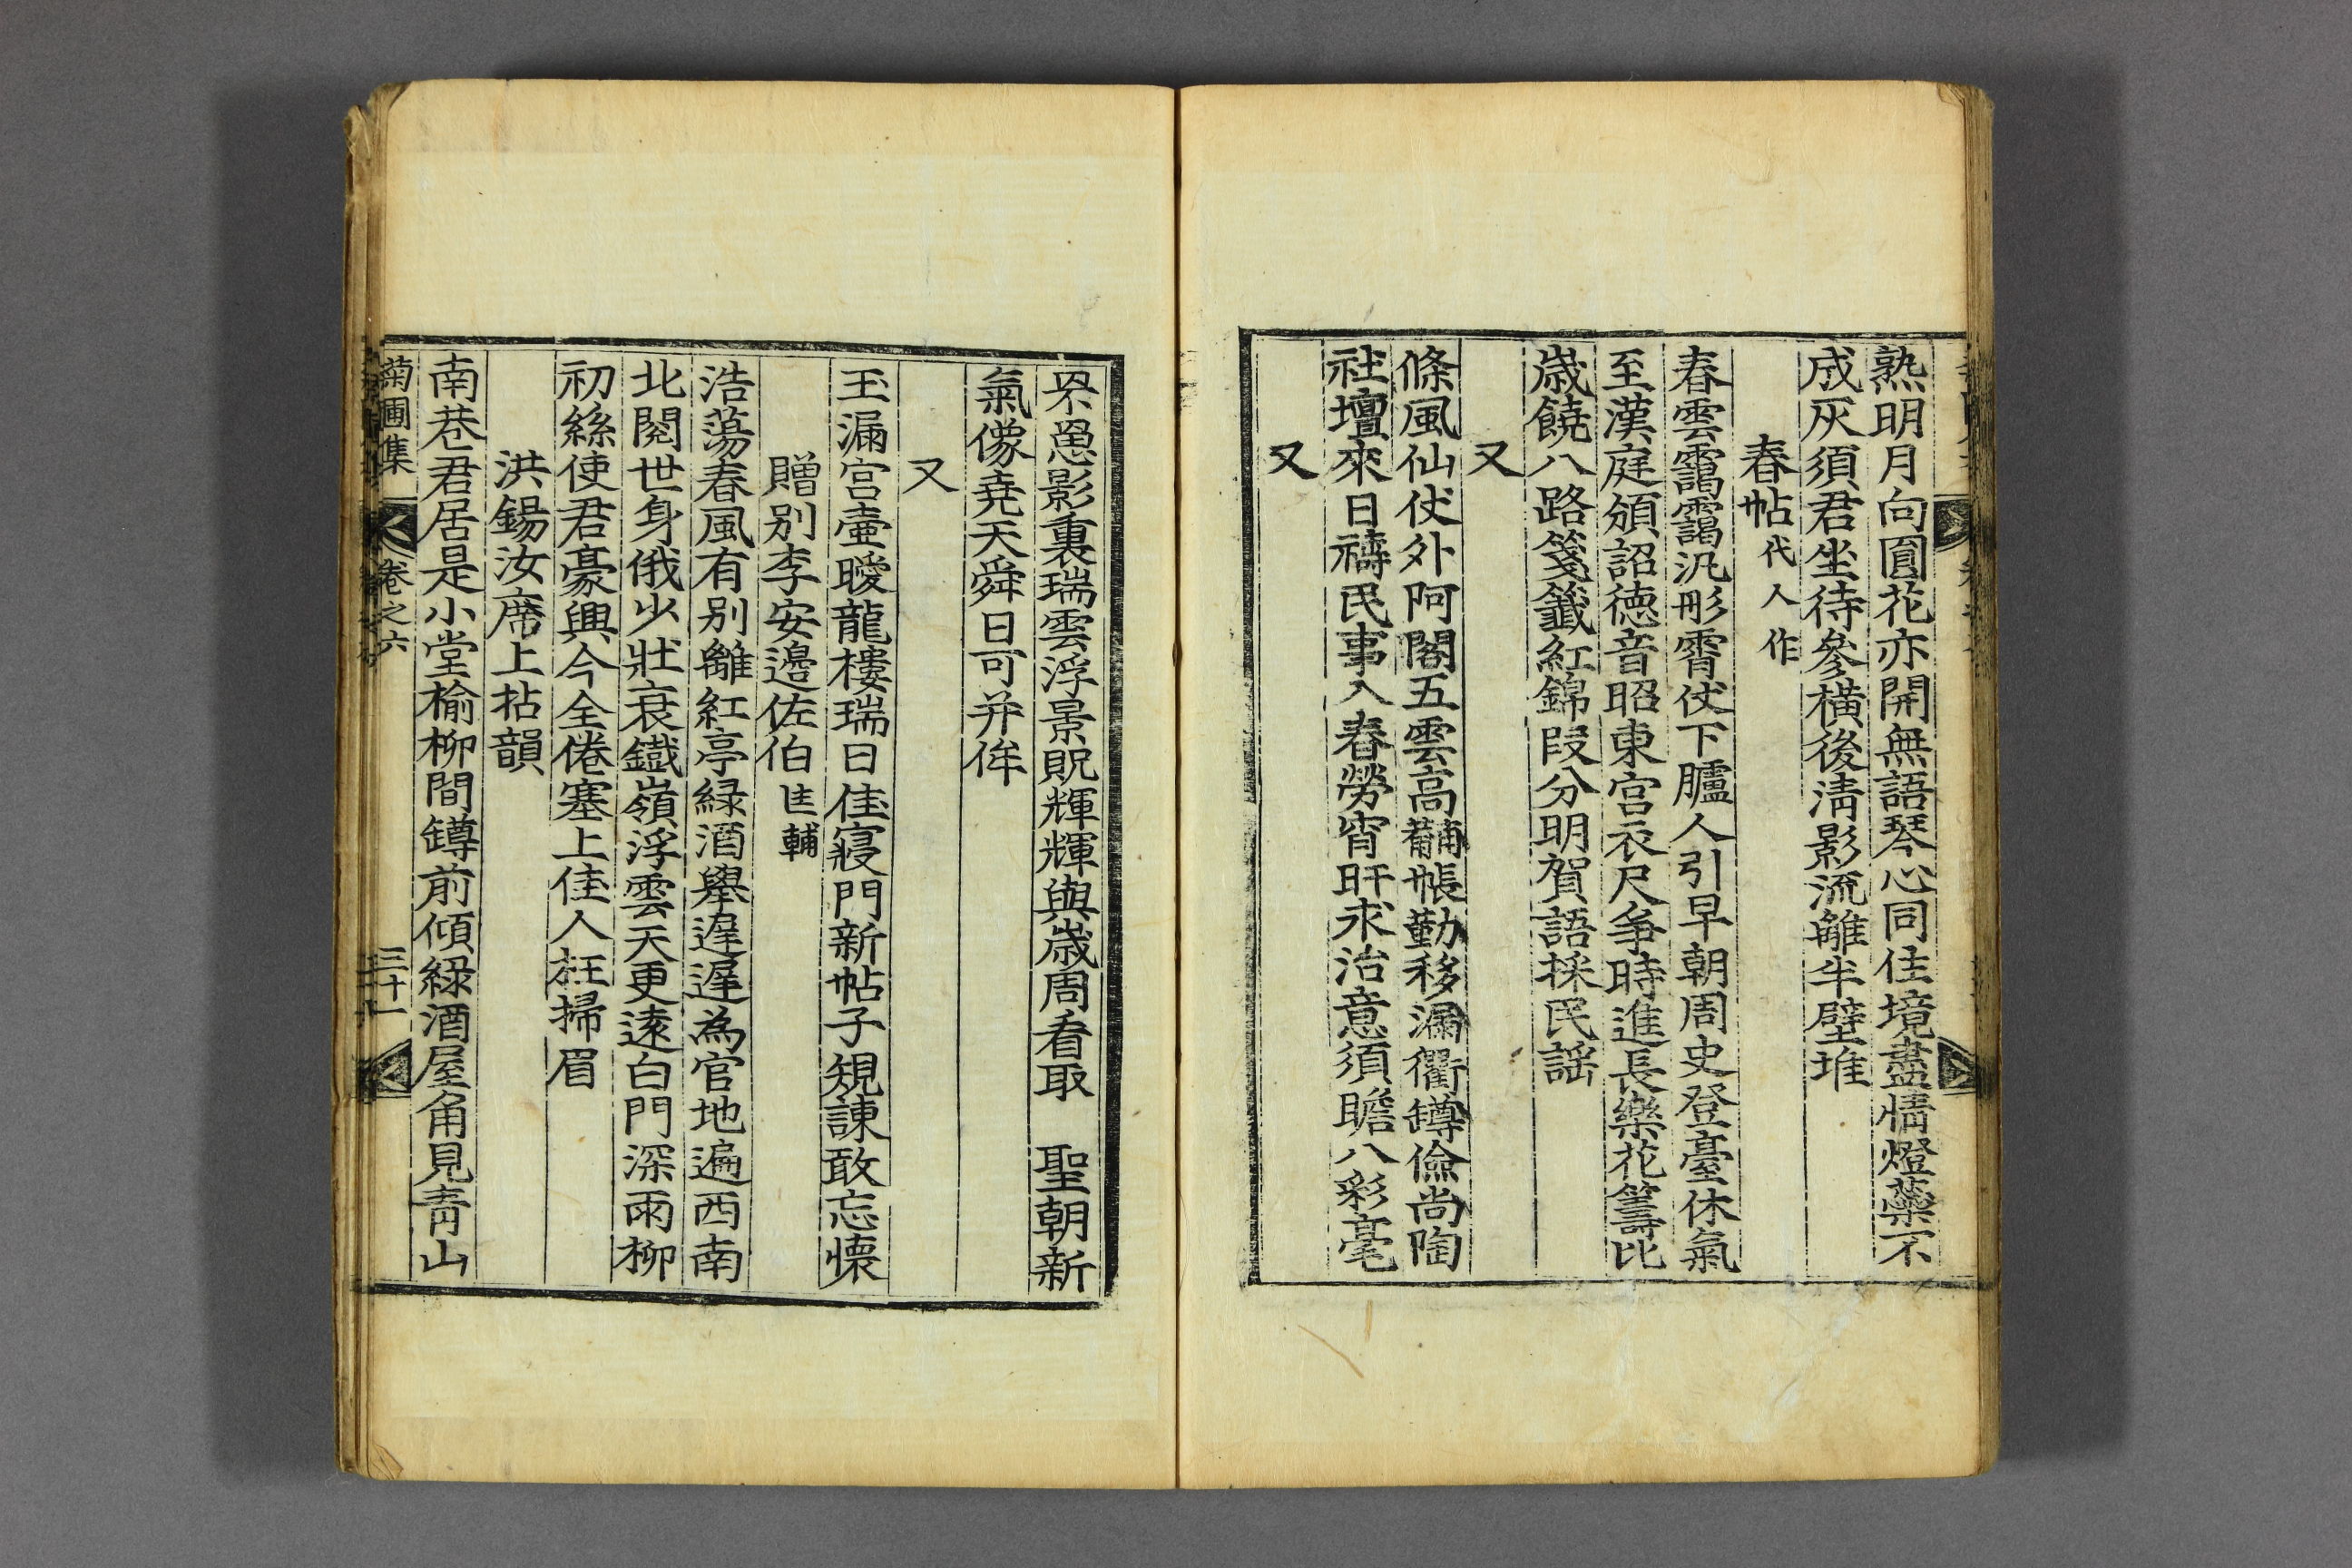 熟明月向圓花亦開無語琴心同住境盡情燈蘂不
成灰須君坐待參橫後淸影流離半壁堆
春帖代人作
春雲靄靄汎彤霄仗下臚人引早朝周史登臺休氣
至漢庭頒詔德音昭東宮衣尺爭時進長樂花籌比
歲饒八路箋籤紅錦段分明賀語採民謠
又
條風仙仗外阿閣五雲高黼帳勤移漏衢罇儉尚陶
社壇來日禱民事入春勞宵旰求治意須瞻八彩毫
又
罘罳影裏瑞雲浮景貺輝輝與歲周看取　聖朝新
氣像堯天舜日可并侔
又
玉漏宮壺曖龍樓瑞日佳寢門新帖子規諫敢忘懷
贈別李安邊佐伯匡輔
浩蕩春風有別離紅亭綠酒擧遲遲為官地遍西南
北閱世身俄少壯衰鐵嶺浮雲天更遠白門深雨柳
初絲使君豪興今全倦塞上佳人枉掃眉
洪錫汝席上拈韻
南巷君居是小堂榆柳間罇前傾綠酒屋角見靑山
菊圃集　卷之六　三十一